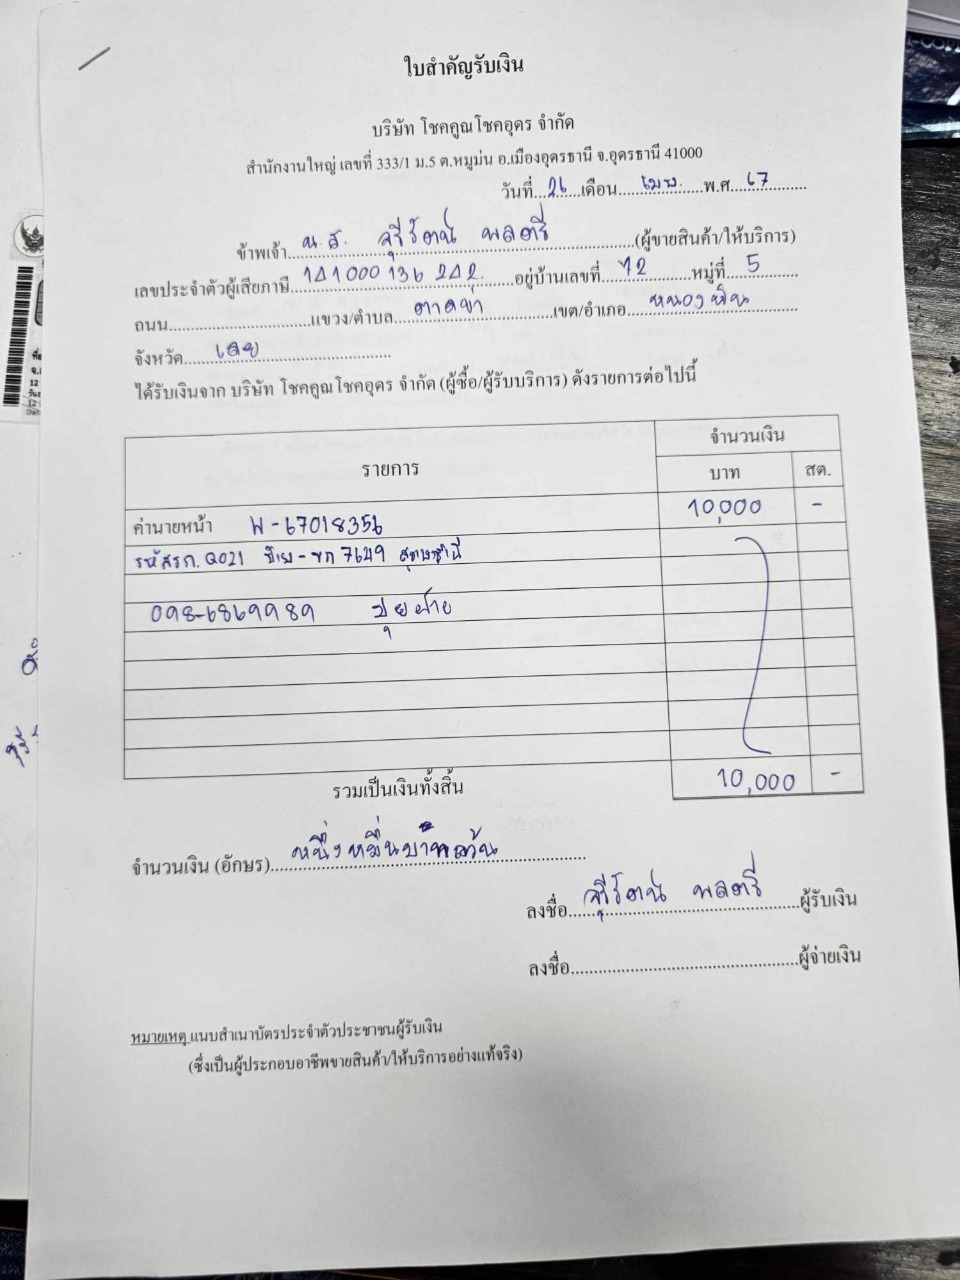 ใบสำคัญรับเงิน
บริษัท โชคคูณโชคอุดร จำกัด
สำนักงานใหญ่ เลขที่ 333/1 ม.5 ต.หมูม่น อ.เมืองอุดรธานี จ.อุดรธานี 41000
วันที่...26......เดือน......เมษ.......พ.ศ....67.........
ข้าพเจ้า...น.ส. จุรีรัตน์ พลตรี..............(ผู้ขายสินค้า/ให้บริการ)
เลขประจำตัวผู้เสียภาษี...141000136242......อยู่บ้านเลขที่...12.........หมู่ที่...5.........
ถนน................................แขวง/ตำบล.....ตาดข่า...............เขต/อำเภอ.....หนองหิน...........
จังหวัด......เลย..............................
ได้รับเงินจาก บริษัท โชคคูณโชคอุดร จำกัด (ผู้ซื้อ/ผู้รับบริการ) ดังรายการต่อไปนี้
รายการ จำนวนเงิน
บาท สต.
ค่านายหน้า N-67018356 10,000 -
รหัสรถ. Q021 7649
098-6869989 ปุยฝ้าย
รวมเป็นเงินทั้งสิ้น 10,000 -
จำนวนเงิน (อักษร)....หนึ่งหมื่นบาทถ้วน..............
ลงชื่อ...จุรีรัตน์ พลตรี.......ผู้รับเงิน
ลงชื่อ..................................................ผู้จ่ายเงิน
หมายเหตุ แนบสำเนาบัตรประจำตัวประชาชนผู้รับเงิน
(ซึ่งเป็นผู้ประกอบอาชีพขายสินค้า/ให้บริการอย่างแท้จริง)